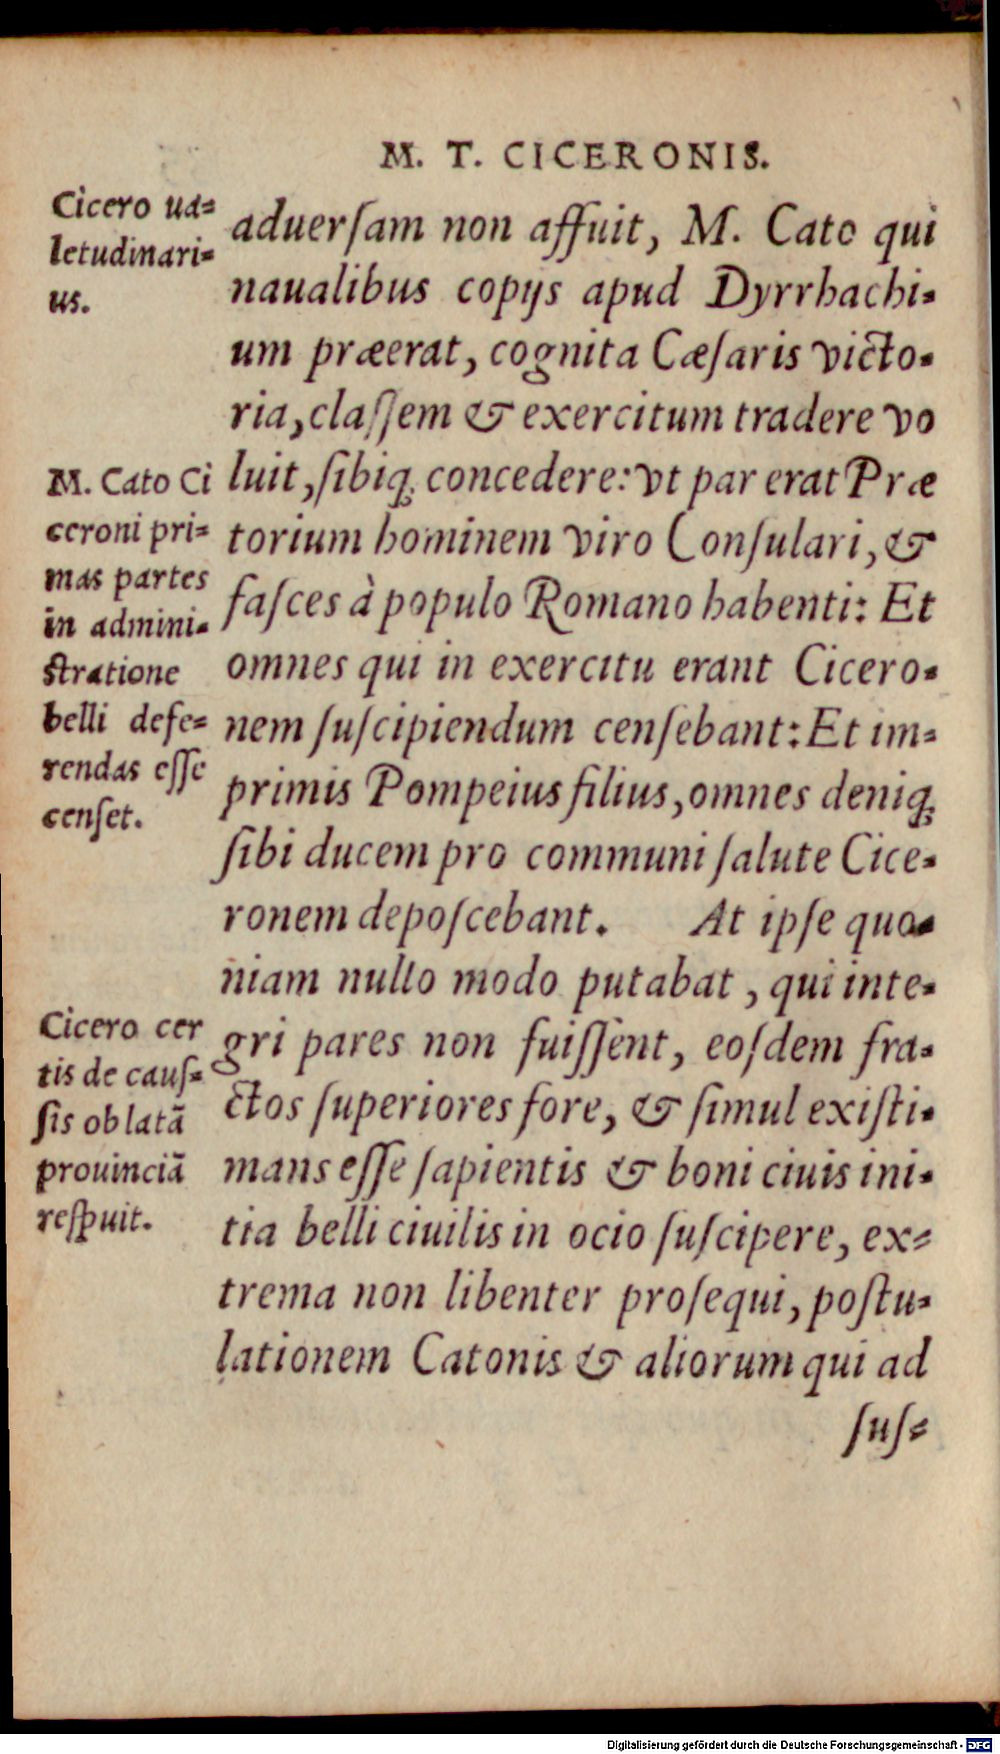 M. T. CICERONIS.
Cicero ua=
letudinari=
us.
aduerſam non affuit, M. Cato qui
naualibus copijs apud Dyrrhachi=
um præerat, cognita Cæſaris victo=
ria, claſſem & exercitum tradere vo
luit, ſibiq; concedere: vt par erat Præ
torium hominem viro Conſulari, &
faſces à populo Romano habenti: Et
omnes qui in exercitu erant Cicero=
nem ſuſcipiendum cenſebant: Et im=
primis Pompeius filius, omnes deniq;
ſibi ducem pro communi ſalute Cice=
ronem depoſcebant. At ipſe quo=
niam nullo modo putabat, qui inte=
gri pares non fuiſſent, eoſdem fra=
ctos ſuperiores fore, & ſimul exiſti=
mans eſſe ſapientis & boni ciuis ini=
tia belli ciuilis in ocio ſuſcipere, ex=
trema non libenter proſequi, poſtu=
lationem Catonis & aliorum qui ad
ſuſ=
M. Cato Ci
ceroni pri=
mas partes
in admini=
ſtratione
belli defe=
rendas eſſe
cenſet.
Cicero cer
tis de cauſ=
ſis oblatã
prouinciã
reſpuit.
Digitalisierung gefördert durch die Deutsche Forschungsgemeinschaft - DFG